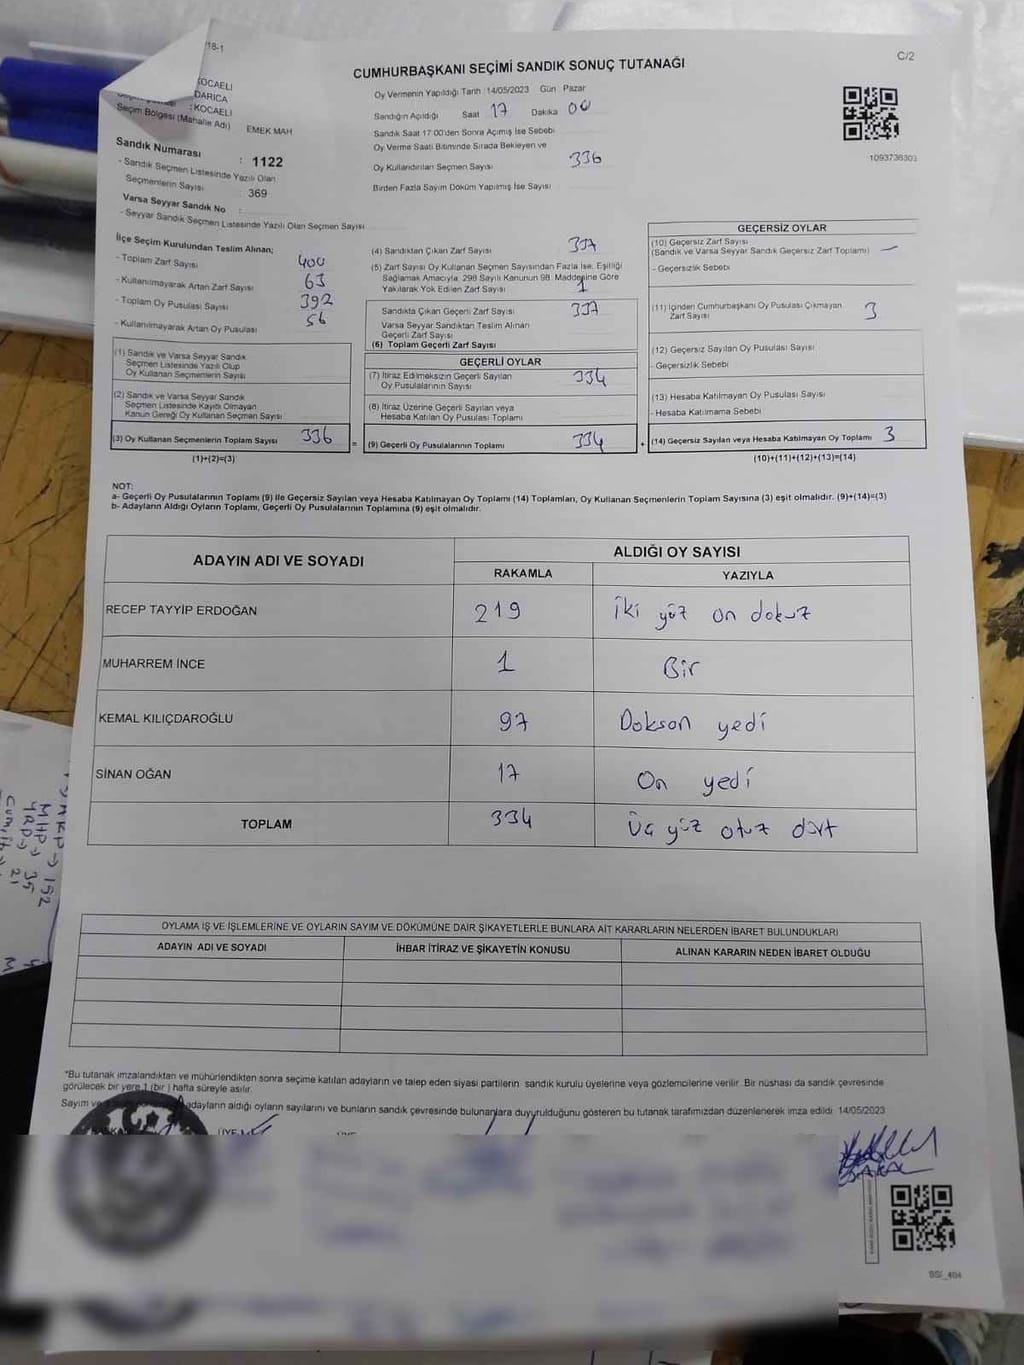 18-1
C/2
CUMHURBAŞKANI SEÇİMİ SANDIK SONUÇ TUTANAĞI
KOCAELİ
DARICA
: KOCAELİ
Seçim Bölgesi (Mahalle Adı) EMEK MAH
Sandık Numarası : 1122
- Sandık Seçmen Listesinde Yazılı Olan
Seçmenlerin Sayısı : 369
Varsa Seyyar Sandık No :
- Seyyar Sandık Seçmen Listesinde Yazılı Olan Seçmen Sayısı
Oy Vermenin Yapıldığı Tarih :14/05/2023 Gün Pazar
Sandığın Açıldığı Saat 17 Dakika 00
Sandık Saat 17:00'den Sonra Açımış İse Sebebi
Oy Verme Saati Bitiminde Sırada Bekleyen ve
Oy Kullandırılan Seçmen Sayısı 336
Birden Fazla Sayım Döküm Yapılmış İse Sayısı
1093736303
İlçe Seçim Kurulundan Teslim Alınan;
- Toplam Zarf Sayısı 400
- Kullanılmayarak Artan Zarf Sayısı 63
- Toplam Oy Pusulası Sayısı 392
- Kullanılmayarak Artan Oy Pusulası 56
(1) Sandık ve Varsa Seyyar Sandık
Seçmen Listesinde Yazılı Olup
Oy Kullanan Seçmenlerin Sayısı
(2) Sandık ve Varsa Seyyar Sandık
Seçmen Listesinde Kayıtlı Olmayan
Kanun Gereği Oy Kullanan Seçmen Sayısı
(3) Oy Kullanan Seçmenlerin Toplam Sayısı 336
(1)+(2)=(3)
(4) Sandıktan Çıkan Zarf Sayısı 337
(5) Zarf Sayısı Oy Kullanan Seçmen Sayısından Fazla İse, Eşitliği
Sağlamak Amacıyla, 298 Sayılı Kanunun 98. Maddesine Göre
Yakılarak Yok Edilen Zarf Sayısı 1
Sandıkta Çıkan Geçerli Zarf Sayısı 337
Varsa Seyyar Sandıktan Teslim Alınan
Geçerli Zarf Sayısı
(6) Toplam Geçerli Zarf Sayısı
GEÇERLİ OYLAR
(7) İtiraz Edilmeksizin Geçerli Sayılan
Oy Pusulalarının Sayısı 334
(8) İtiraz Üzerine Geçerli Sayılan veya
Hesaba Katılan Oy Pusulası Toplamı
= (9) Geçerli Oy Pusulalarının Toplamı 334
GEÇERSİZ OYLAR
(10) Geçersiz Zarf Sayısı
(Sandık ve Varsa Seyyar Sandık Geçersiz Zarf Toplamı) —
- Geçersizlik Sebebi
(11) İçinden Cumhurbaşkanı Oy Pusulası Çıkmayan
Zarf Sayısı 3
(12) Geçersiz Sayılan Oy Pusulası Sayısı
- Geçersizlik Sebebi
(13) Hesaba Katılmayan Oy Pusulası Sayısı
- Hesaba Katılmama Sebebi
+ (14) Geçersiz Sayılan veya Hesaba Katılmayan Oy Toplamı 3
(10)+(11)+(12)+(13)=(14)
NOT:
a- Geçerli Oy Pusulalarının Toplamı (9) ile Geçersiz Sayılan veya Hesaba Katılmayan Oy Toplamı (14) Toplamları, Oy Kullanan Seçmenlerin Toplam Sayısına (3) eşit olmalıdır. (9)+(14)=(3)
b- Adayların Aldığı Oyların Toplamı, Geçerli Oy Pusulalarının Toplamına (9) eşit olmalıdır.
ADAYIN ADI VE SOYADI
ALDIĞI OY SAYISI
RAKAMLA YAZIYLA
RECEP TAYYİP ERDOĞAN 219 iki yüz on dokuz
MUHARREM İNCE 1 Bir
KEMAL KILIÇDAROĞLU 97 Doksan yedi
SİNAN OĞAN 17 On yedi
TOPLAM 334 Üç yüz otuz dört
MHP → 35
YRP → 21
OYLAMA İŞ VE İŞLEMLERİNE VE OYLARIN SAYIM VE DÖKÜMÜNE DAİR ŞİKAYETLERLE BUNLARA AİT KARARLARIN NELERDEN İBARET BULUNDUKLARI
ADAYIN ADI VE SOYADI İHBAR İTİRAZ VE ŞİKAYETİN KONUSU ALINAN KARARIN NEDEN İBARET OLDUĞU
*Bu tutanak imzalandıktan ve mühürlendikten sonra seçime katılan adayların ve talep eden siyasi partilerin sandık kurulu üyelerine veya gözlemcilerine verilir. Bir nüshası da sandık çevresinde
görülecek bir yere 1 (bir) hafta süreyle asılır.
Sayım ve adayların aldığı oyların sayılarını ve bunların sandık çevresinde bulunanlara duyurulduğunu gösteren bu tutanak tarafımızdan düzenlenerek imza edildi. 14/05/2023
BAŞKAN ÜYE ÜYE
BSI_404